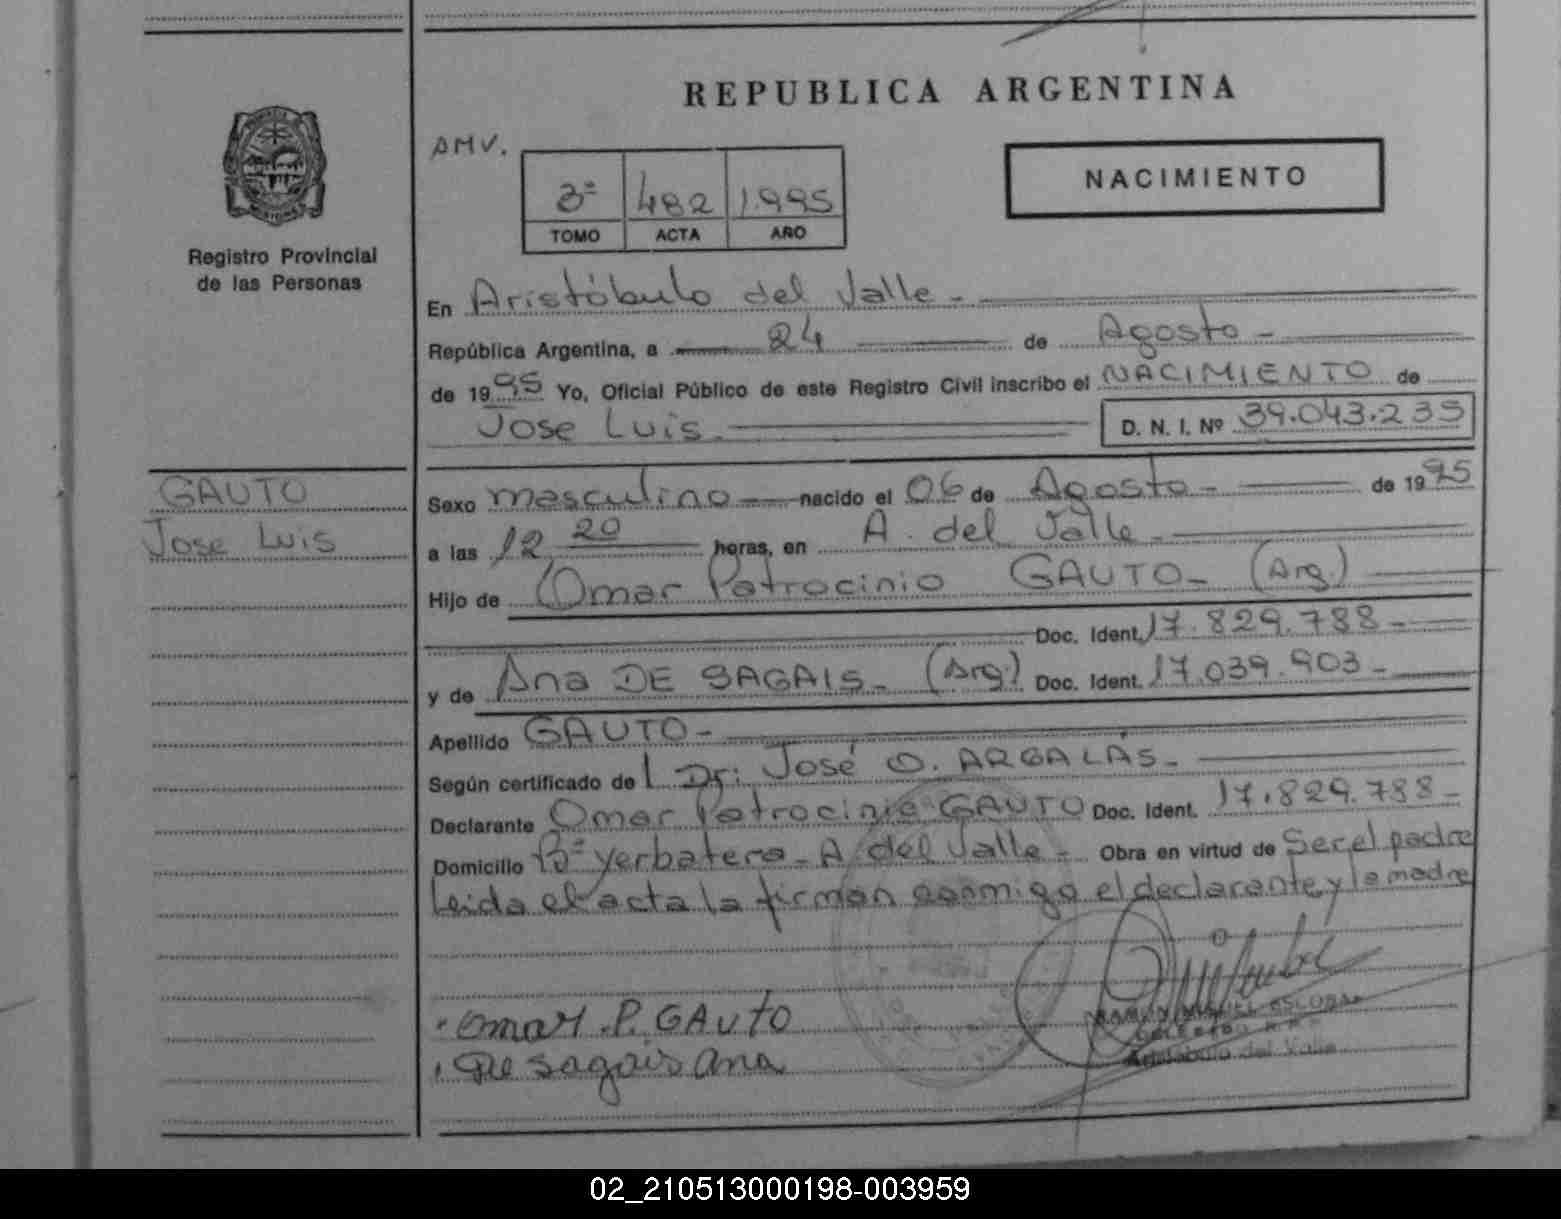 REPUBLICA ARGENTINA
AMV.
3º 482 1.995
TOMO ACTA AÑO
NACIMIENTO
Registro Provincial
de las Personas
En Aristóbulo del Valle -
República Argentina, a 24 de Agosto -
de 1995 Yo, Oficial Público de este Registro Civil inscribo el NACIMIENTO de
Jose Luis. D. N. I. Nº 39.043.235
GAUTO
Jose Luis
Sexo masculino nacido el 06 de Agosto - de 1995
a las 12 20 horas, en A. del Valle -
Hijo de Omar Patrocinio GAUTO - (Arg.)
Doc. Ident. 17.829.788 -
y de Ana DE SAGAIS - (Arg.) Doc. Ident. 17.039.903 -
Apellido GAUTO -
Según certificado de Dr: José O. ARGALÁS -
Declarante Omar Patrocinio GAUTO Doc. Ident. 17.829.788 -
Domicilio Bº Yerbatero - A del Valle - Obra en virtud de Ser el padre
Leida el acta la firman conmigo el declarante y la madre
Omar P. GAUTO
De Sagais Ana
RAMON MIGUEL ESCOBAR
Aristóbulo del Valle
02_210513000198-003959